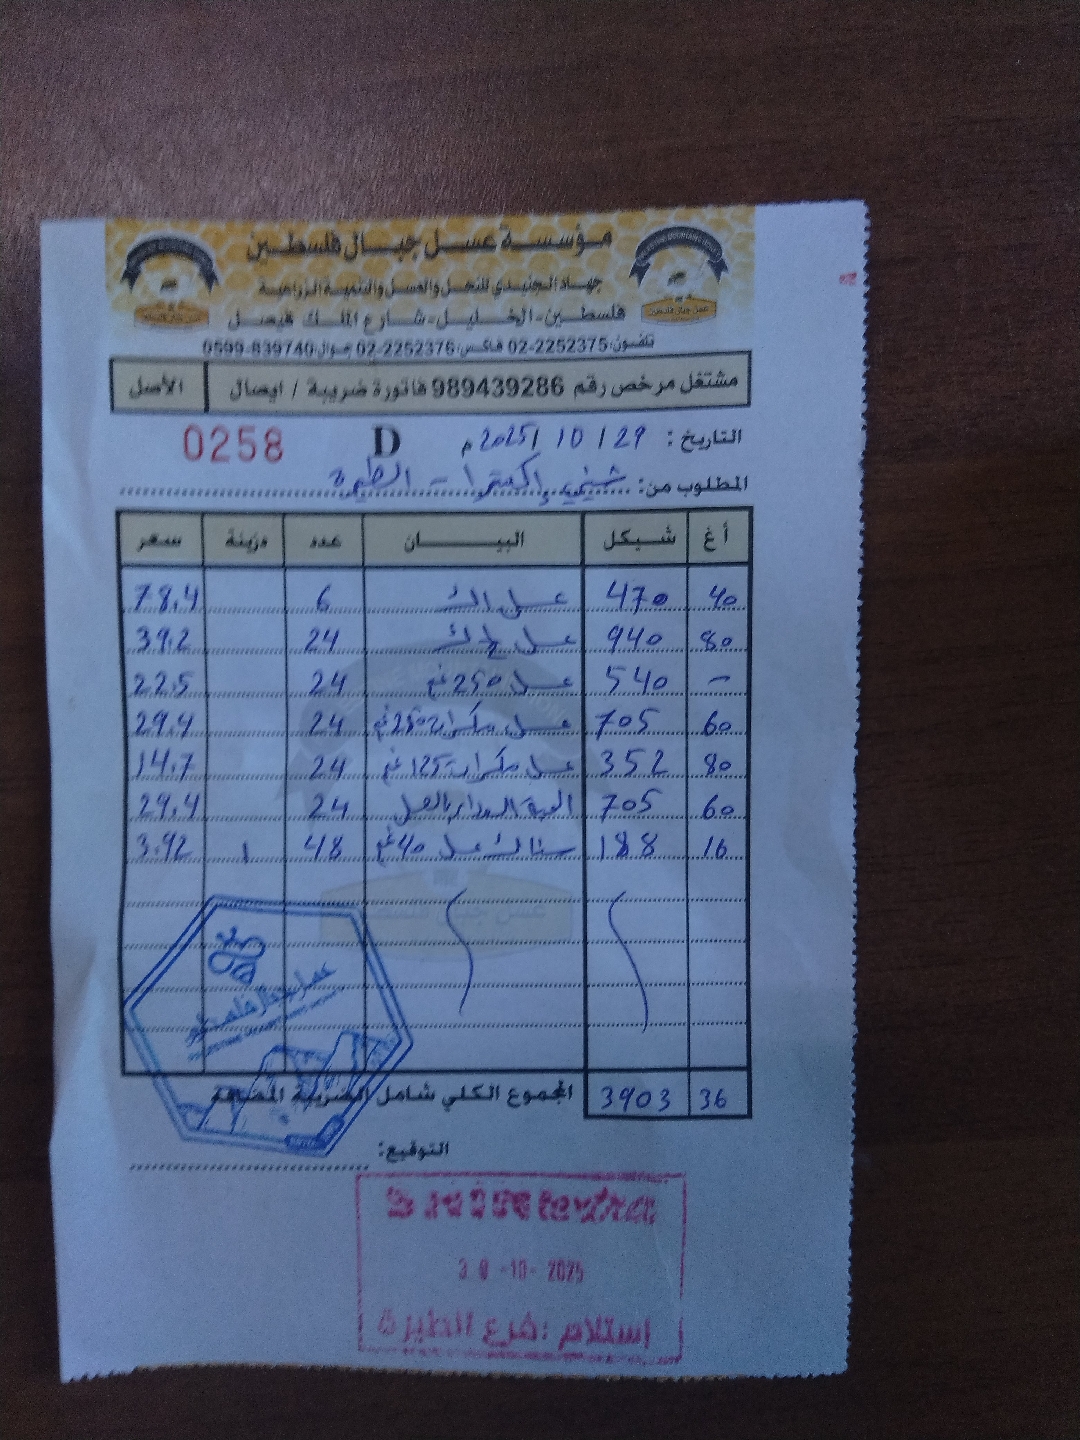 مؤسسة عسل جبال فلسطين
جهاد الجنيدي للنحل والعسل والتنمية الزراعية
فلسطين - الخليل - شارع الملك فيصل
تلفون: 02-2252375 فاكس: 02-2252376 جوال: 0599-839740
مشتغل مرخص رقم 989439286 فاتورة ضريبة / ايصال الأصل
التاريخ: 29 / 10 / 2025 م D 0258
المطلوب من: إكسترا - الطيرة
أغ شيكل البيـــان عدد دزينة سعر
40 470 عسل 1 ك 6 78.4
80 940 عسل ½ ك 24 39.2
- 540 عسل 250 غم 24 22.5
60 705 عسل مكسرات 250 غم 24 29.4
80 352 عسل مكسرات 125 غم 24 14.7
60 705 السوداء بالعسل 24 29.4
16 188 عسل 40 غم 48 1 3.92
عسل جبال فلسطين
36 3903 المجموع الكلي شامل الضريبة المضافة
التوقيع:
30-10-2025
إستلام: فرع الطيرة